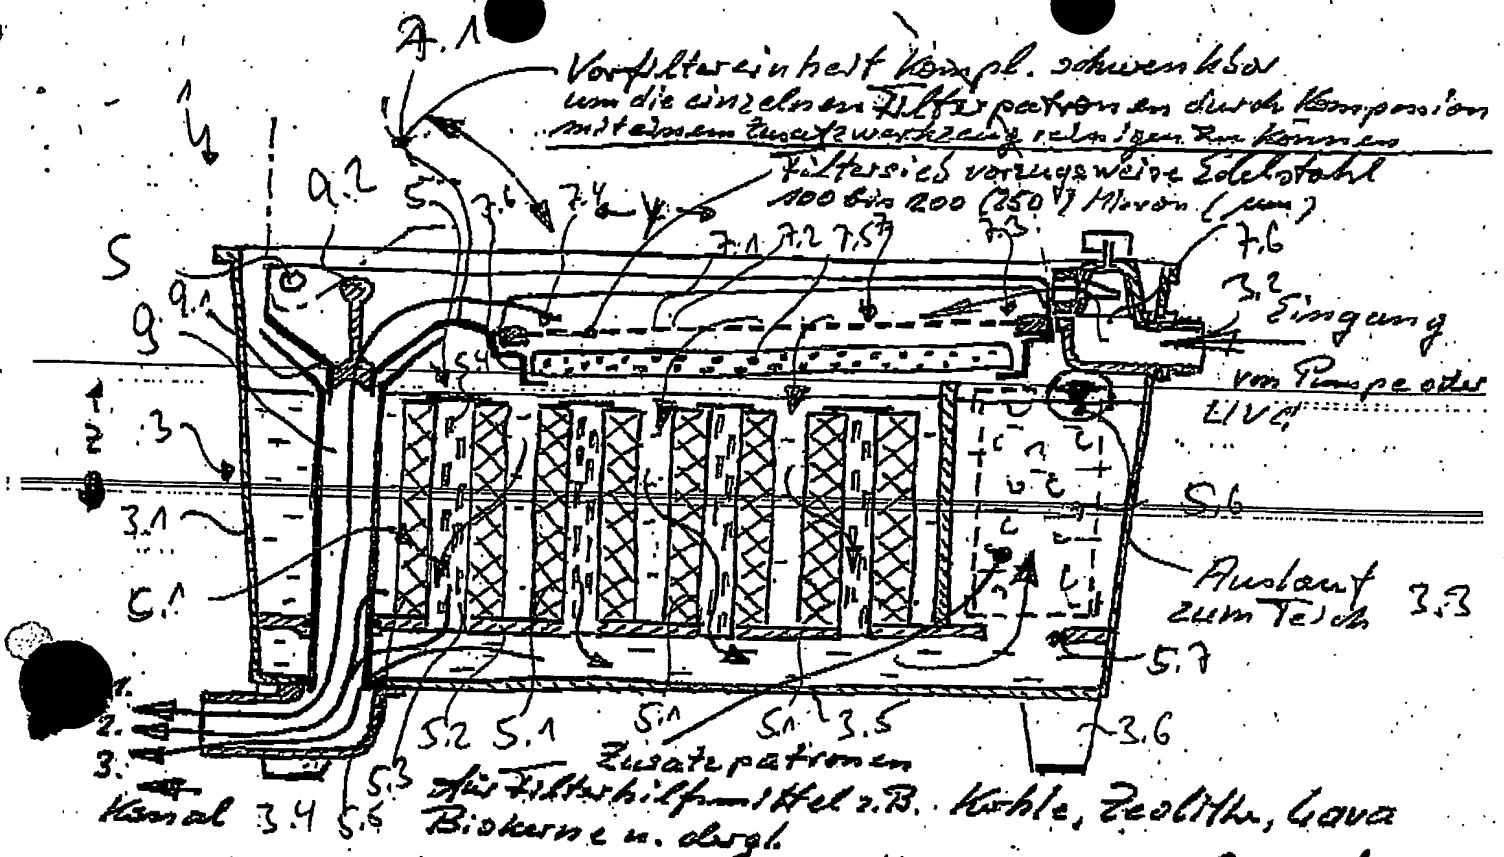 A.1
Vorfiltereinheit kompl. schwenkbar
um die einzelnen Filterpatronen durch
mit einem Zusatzwerkzeug reinigen zu können
Filtersieb vorzugsweise Edelstahl
100 bis 200 (250 ) Micron (µm)
1
9.2
5
7.6
7.4
7.1
7.2
7.5
7.3
7.6
S
9.1
9
3.2
Eingang
5.4
von Pumpe oder
UVC
z
3
3.1
5.6
5.1
Auslauf
zum Teich
3.3
5.7
1.
2.
3.
5.2
5.1
5.1
5.1
3.5
3.6
Zusatzpatronen
5.3
für Filterhilfsmittel z.B. Kohle, Zeolithe, Lava
Kanal
3.4
5.5
Biokerne u. dergl.